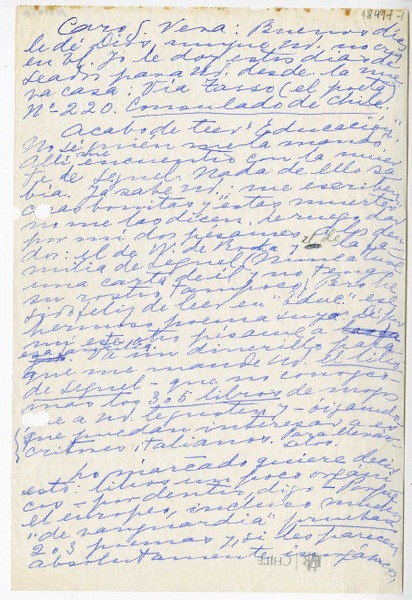 18497-1
Caro S. Vera: Buenos días
le dé Dios, aunque Ud. no crea
en Él. Yo le doy estos días de-
seados para Ud. desde la nue-
va casa: Via Tasso (el poeta)
Nº 220. Consulado de Chile.
Acabo de leer "Educación".
No sé quien me la mandó.
Allí me encuentro con la muer-
te de Seguel. Nada de ello sa-
bía. Ya sabe Ud.: me escriben
cosas bonitas y estas muertes
no me las dicen. Le ruego dar
por mí dos pésames. Los deu-
dos: el de W. de Roda y el de la fa-
milia de Seguel (Nunca tuve
una carta de él y no tengo
su rostro, tampoco). Pero he
sido feliz de leer en "Educ." ese
hermoso poema suyo. Dé por
mí ese pésame a
Va un dinerillo para
que me mande Ud. el libro
de Seguel - que no conozco
más los 3 ó 5 libros de
que a Ud. le gusten y - óigame
que puedan interesar a es-
critores italianos. Para
Lo marcado quiere decir
esto: libros un poco orgáni-
cos - por dentro, digo - Porque
el europeo, incluso mucho
"de vanguardia" prueba
2 ó 3 poemas y, si le parecen
absolutamente inorgánicos,
CHILE